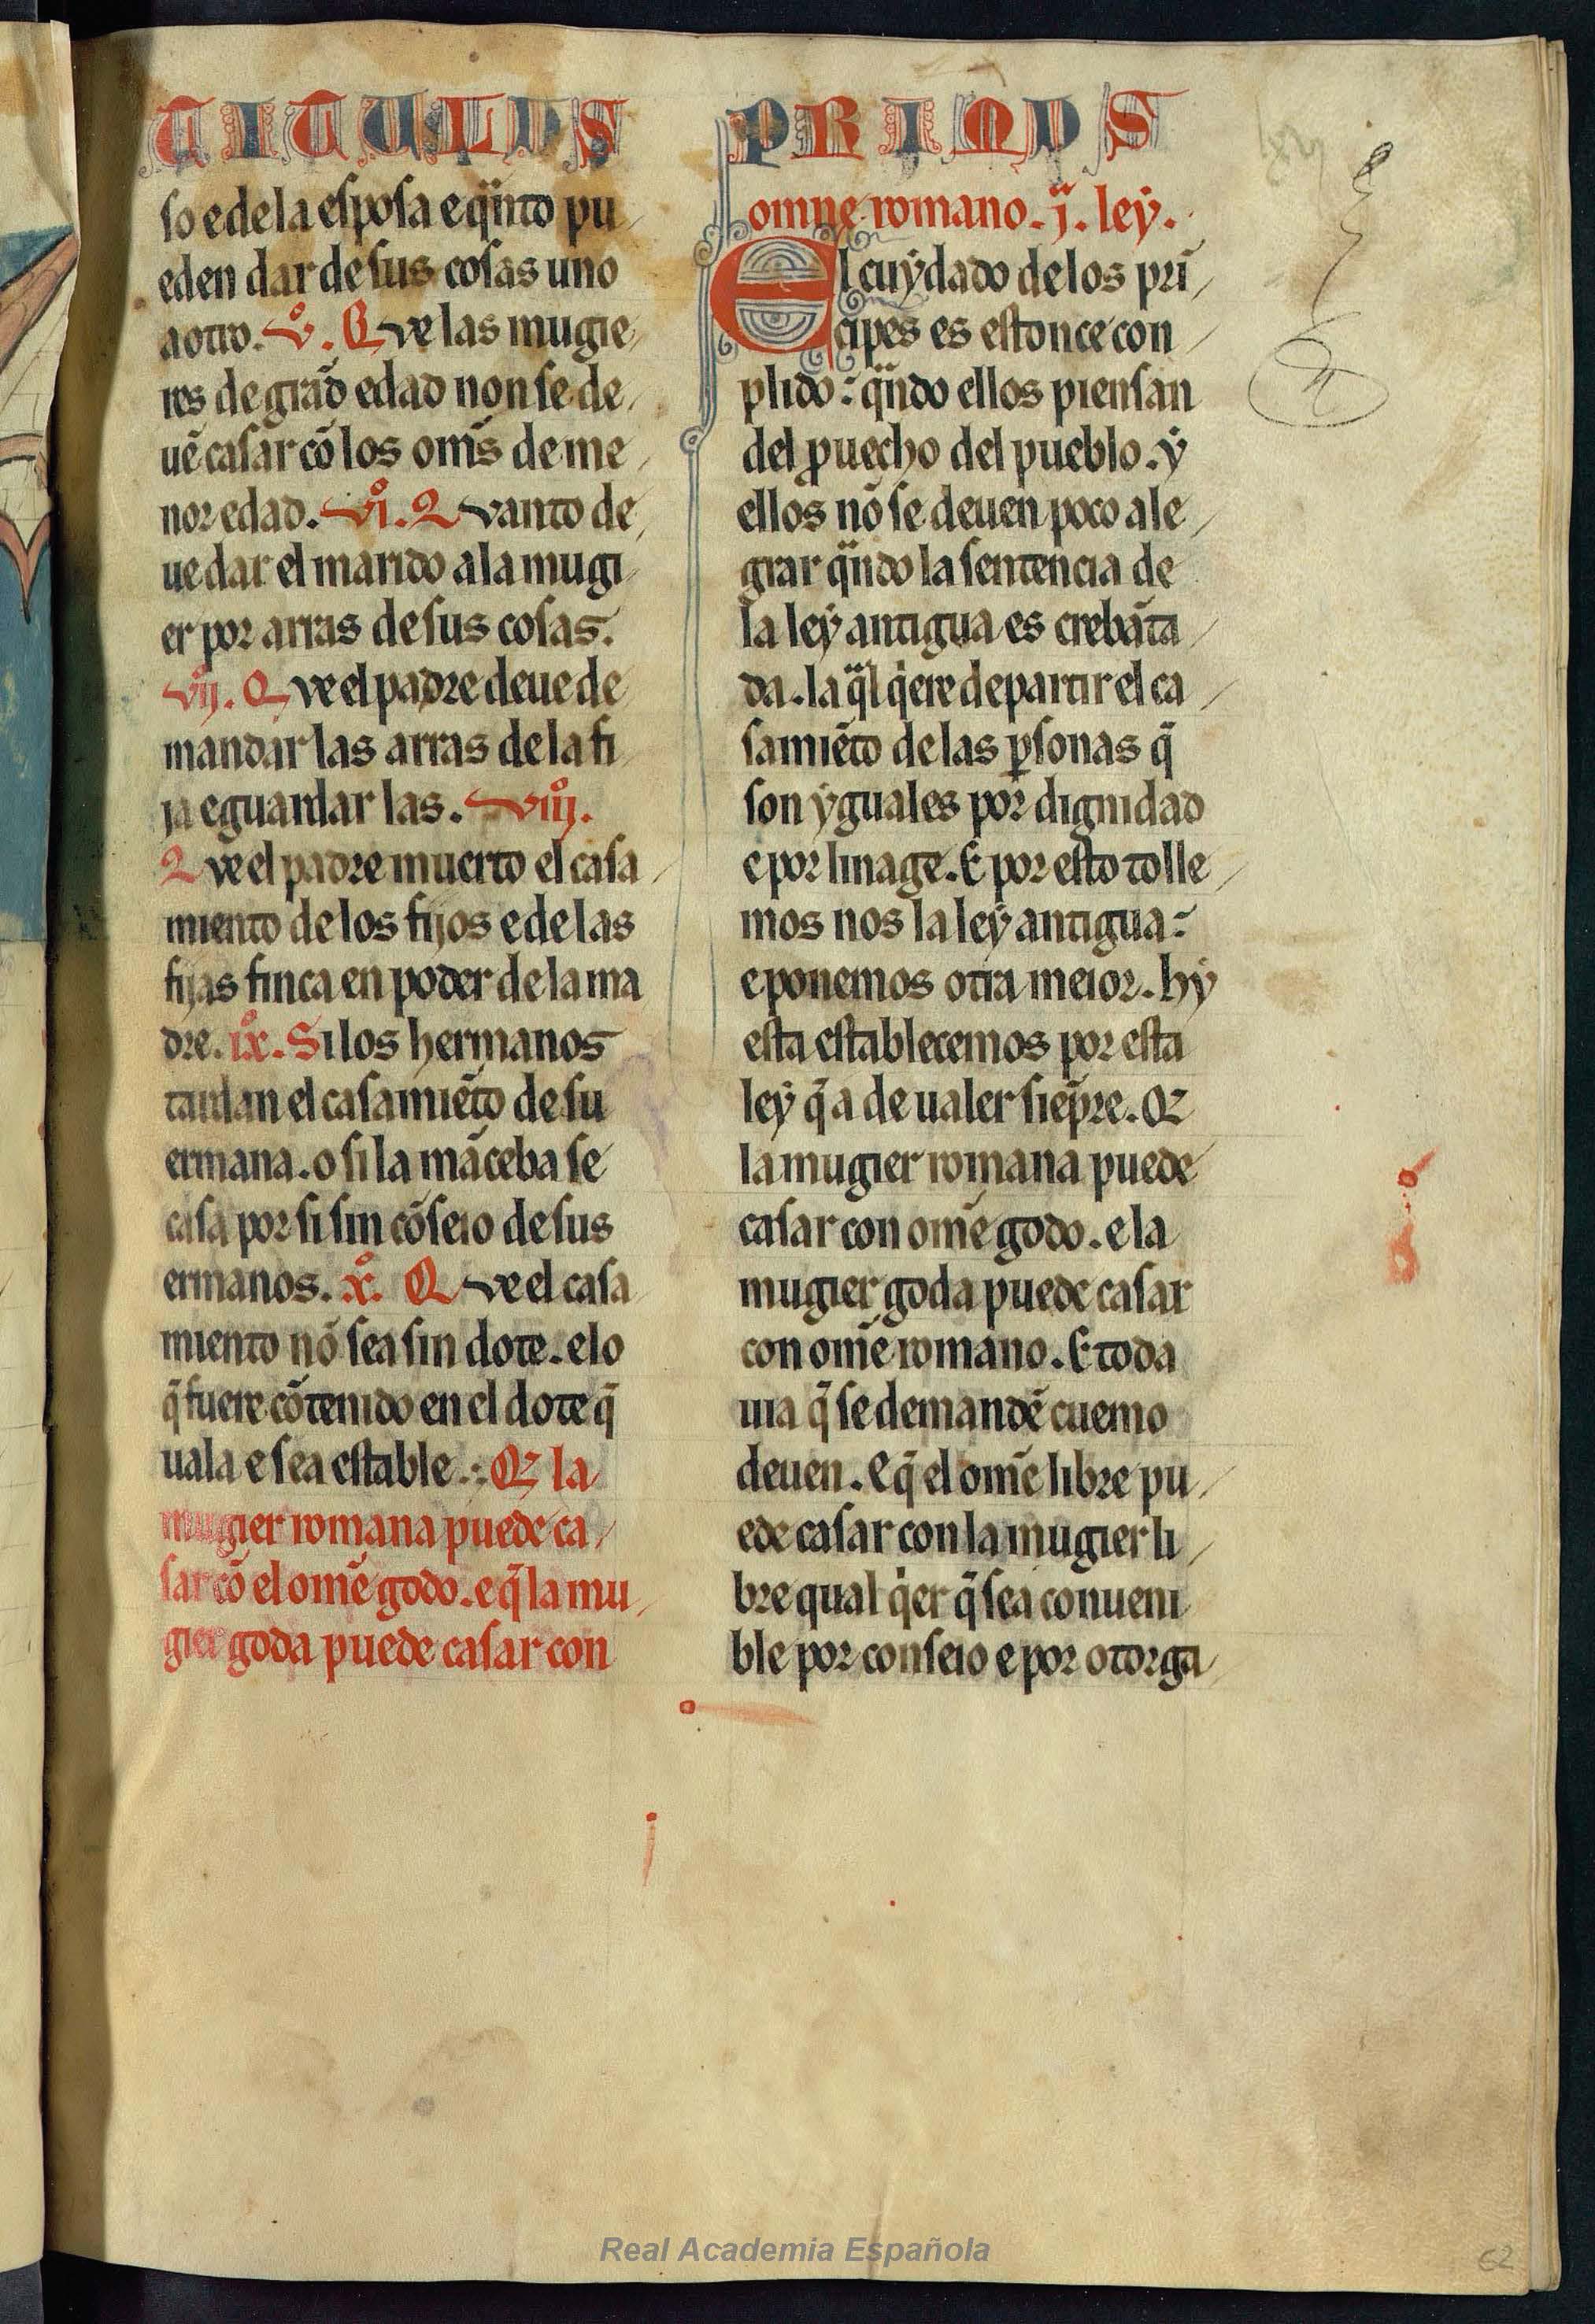 TITULUS PRIMUS
so e dela esposa e qⁿnto pu
eden dar de sus cosas uno
a otro. v̊. Q ve las mugie
res de grãd edad non se de
uẽ casar cõ los om̃s de me
nor edad. vi̊. Q vanto de
ue dar el marido ala mugi
er por arras de sus cosas.
vij̊. Q ve el padre deue de
mandar las arras de la fi
ja e guardar las. viij̊.
Q ve el padre muerto el casa
miento de los fijos e de las
fijas finca en poder de la ma
dre. ix̊. Si los hermanos
tardan el casamiẽto de su
ermana. o si la mãceba se
casa por si sin cõseio de sus
ermanos. x̊. Q ve el casa
miento nõ sea sin dote. e lo
q̃ fuere cõtenido en el dote q̃
uala e sea estable. Qꝫ la
mugier romana puede ca
sar cõ el om̃e godo. e q̃ la mu
gier goda puede casar con
omne romano. j̊. ley.
El cuydado de los pri̅
cipes es estonce con
plido: qⁿndo ellos piensan
del ꝓuecho del pueblo. y
ellos nõ se deuen poco ale
grar qⁿndo la sentencia de
la ley antigua es crebãta
da. la qᵃl qⁱere departir el ca
samiẽto de las ꝑsonas q̃
son yguales por dignidad
e por linage. E por esto tolle
mos nos la ley antigua:
e ponemos otra meior. hy
esta establecemos por esta
ley q̃ a de ualer siẽpre. Qꝫ
la mugier romana puede
casar con om̃e godo. e la
mugier goda puede casar
con om̃e romano. E toda
uia q̃ se demandẽ cuemo
deuen. E q̃ el om̃e libre pu
ede casar con la mugier li
bre qual qⁱer q̃ sea conueni
ble por conseio e por otorga
Real Academia Española
62